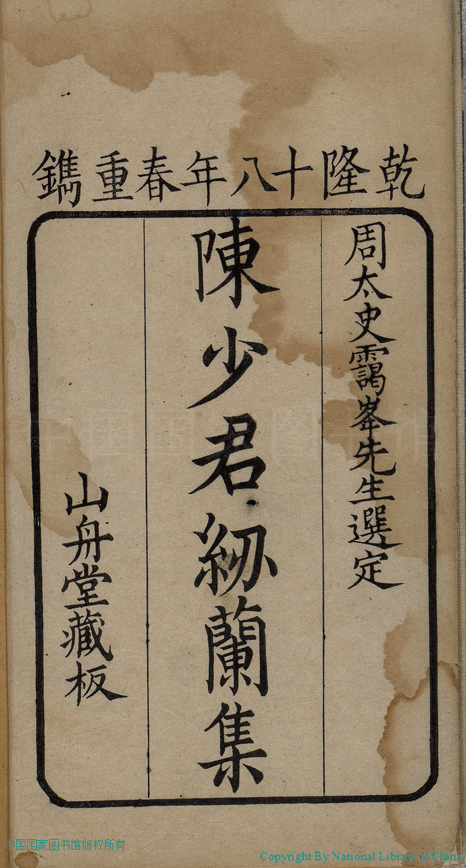 乾隆十八年春重鐫
周太史靄峯先生選定
陳少君紉蘭集
山舟堂藏板
中国国家图书馆版权所有
Copyright By National Library of China